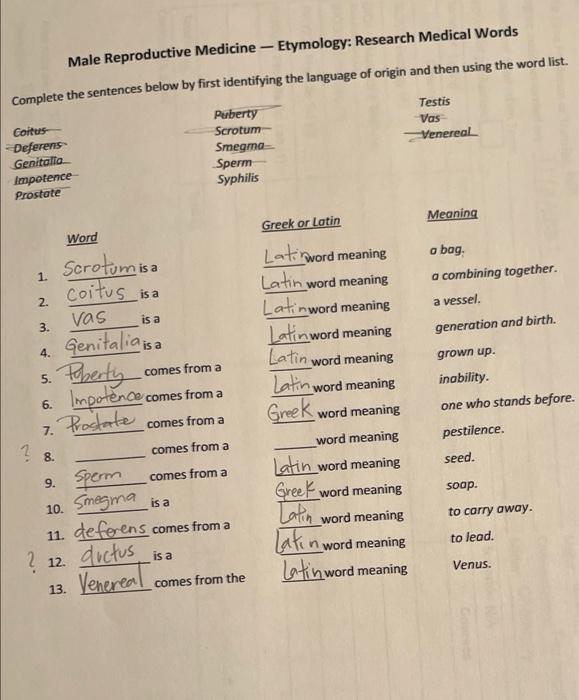 Male Reproductive Medicine — Etymology: Research Medical Words
Complete the sentences below by first identifying the language of origin and then using the word list.
Coitus Puberty Testis
Deferens Scrotum Vas
Genitalia Smegma Venereal
Impotence Sperm
Prostate Syphilis
Word Greek or Latin Meaning
1. Scrotum is a Latin word meaning a bag.
2. coitus is a Latin word meaning a combining together.
3. vas is a Latin word meaning a vessel.
4. Genitalia is a Latin word meaning generation and birth.
5. Puberty comes from a Latin word meaning grown up.
6. Impotence comes from a Latin word meaning inability.
7. Prostate comes from a Greek word meaning one who stands before.
? 8. comes from a word meaning pestilence.
9. Sperm comes from a Latin word meaning seed.
10. Smegma is a Greek word meaning soap.
11. deferens comes from a Latin word meaning to carry away.
? 12. ductus is a Latin word meaning to lead.
13. Venereal comes from the Latin word meaning Venus.